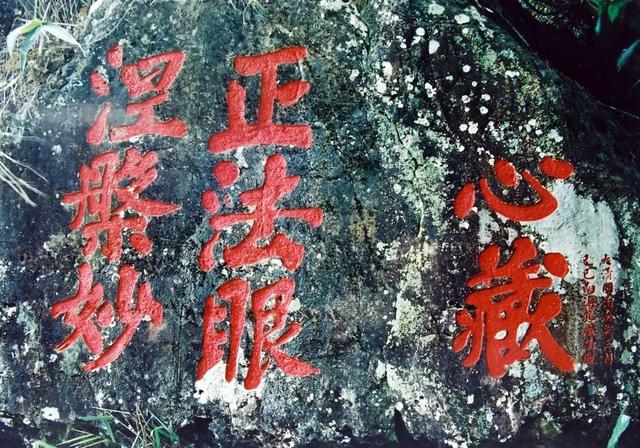 心藏
正法眼
涅槃妙